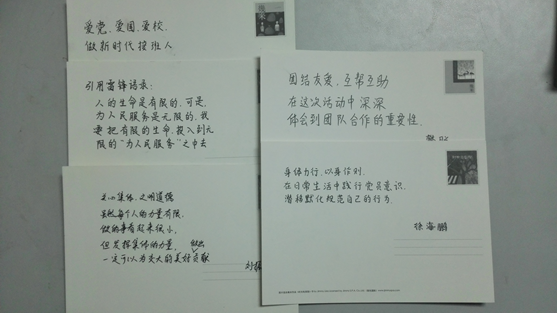 爱党、爱国、爱校,
做新时代接班人
引用雷锋语录:
人的生命是有限的,可是,
为人民服务是无限的,我
要把有限的生命,投入到无
限的“为人民服务”之中去
关心集体,文明道德
虽然每个人的力量有限,
做的事看起来很小,
但发挥集体的力量,
一定可以为交大的美好做出贡献
团结友爱,互帮互助
在这次活动中深深
体会到团队合作的重要性。
身体力行,以身作则,
在日常生活中践行党员意识,
潜移默化规范自己的行为。
徐海鹏